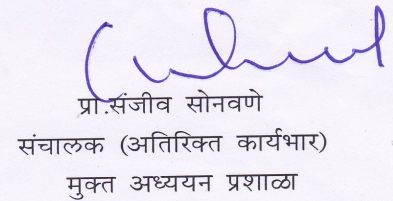 प्रा.संजीव सोनवणे
संचालक (अतिरिक्त कार्यभार)
मुक्त अध्ययन प्रशाळा